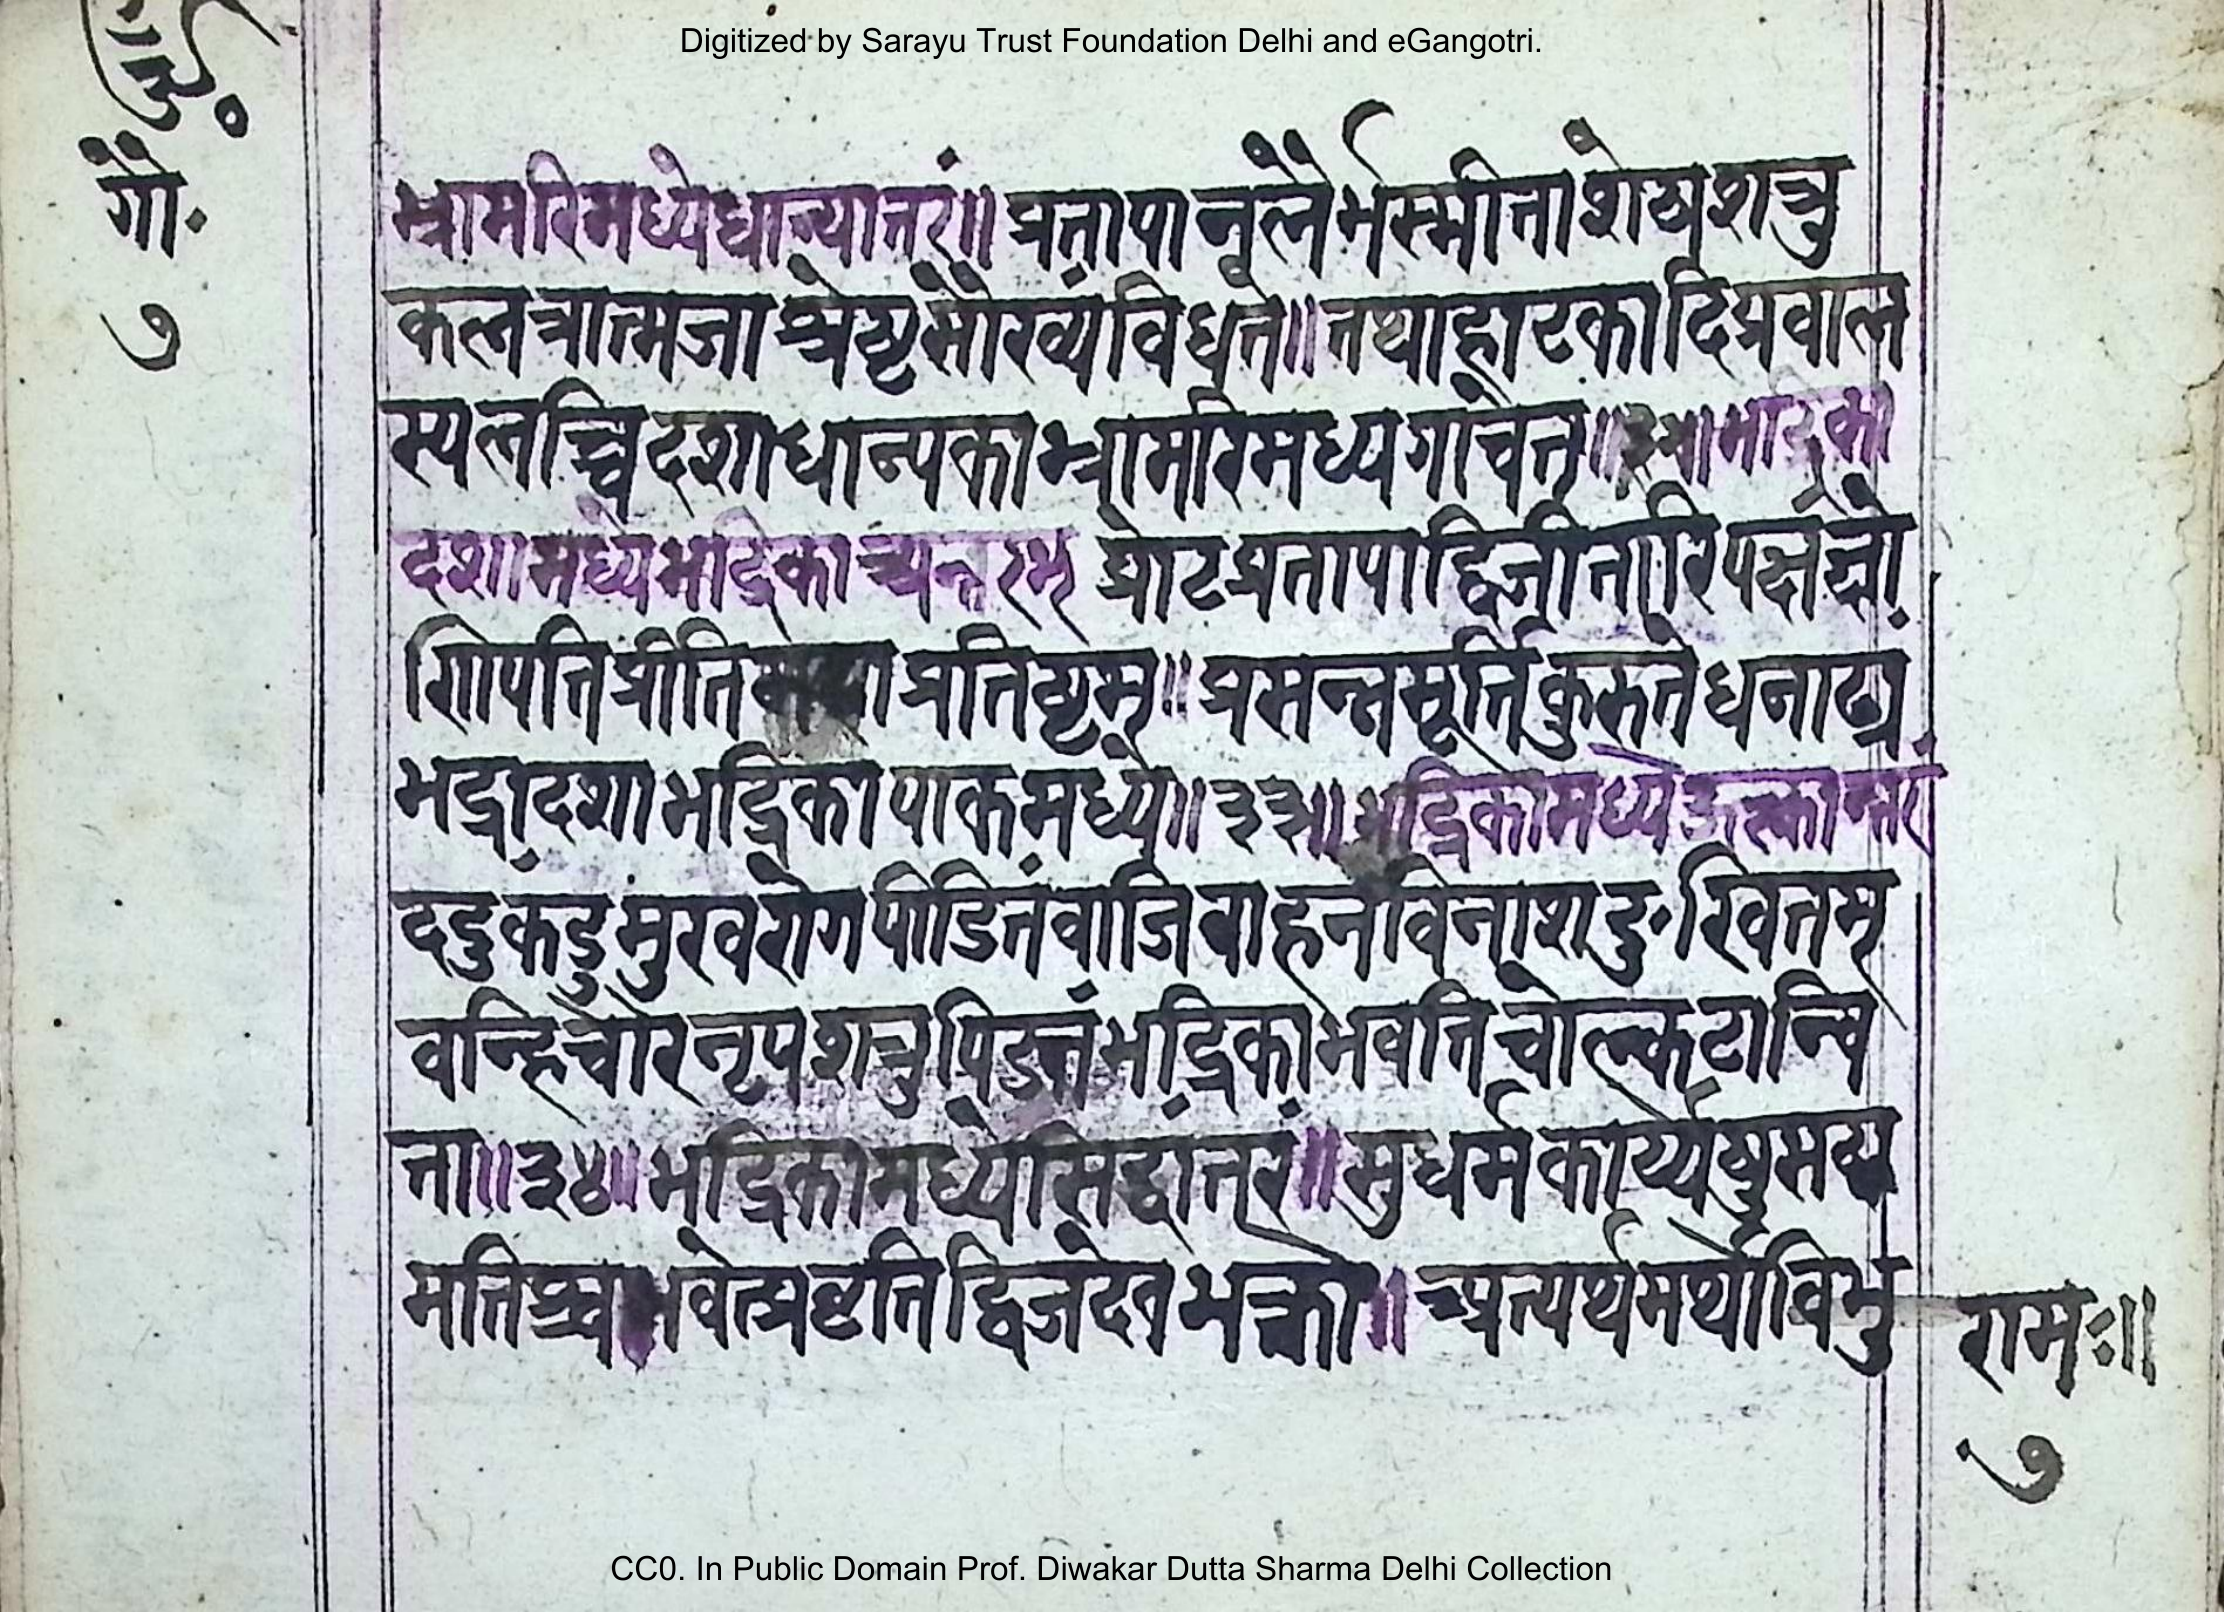 Digitized by Sarayu Trust Foundation Delhi and eGangotri.
गौ.
७
भ्रामरिमध्येधान्यात्तरं॥ प्रतापानलैर्भस्मीताशेष्यशत्रु
कलत्रात्मजाश्रेष्टसौख्यंविधत्ते॥ तथाहाटकादिप्रवाल
स्पलब्धिदशाधान्यकाभ्रामरिमध्यगांचेत्॥ भाद्रिका
दशामध्येभद्रिकाभ्यन्तरम् प्रोटप्रतापाद्विजीतारिपक्षं
गिापतिप्रीति प्रतिष्टम्॥ प्रसन्नमूर्तिकुरुतेधनाढ्यं
भद्रादशाभद्रिकापाकमध्ये॥३३॥ भद्रिकामध्येऊल्कान्तरं
दद्रुकंडुमुखरोगपीडितंवाजिवाहनविनाशदुःखितम्
वन्हिचौरनृपशत्रुपिडतंभद्रिकाभवतिचोल्कटान्वि
ता॥३४॥ भद्रिकामध्येसिद्वांत्तरं॥ सुधर्मकार्य्येषुमव्य
मतिश्च भवेत्प्रष्टतिद्विजदेवभक्तो॥ प्रत्यर्थमर्थोविभु
रामः॥
७
CC0. In Public Domain Prof. Diwakar Dutta Sharma Delhi Collection